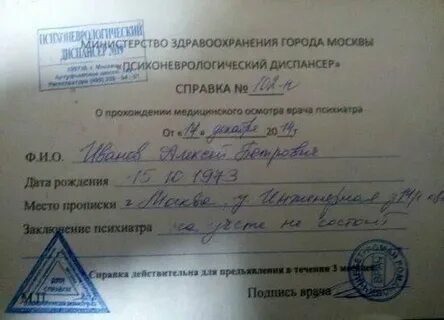 ПСИХОНЕВРОЛОГИЧЕСКИЙ
ДИСПАНСЕР
МИНИСТЕРСТВО ЗДРАВООХРАНЕНИЯ ГОРОДА МОСКВЫ
«ПСИХОНЕВРОЛОГИЧЕСКИЙ ДИСПАНСЕР»
СПРАВКА № 102-н
О прохождении медицинского осмотра врача психиатра
От «17» декабря 2014г.
Ф.И.О. Иванов Алексей Петрович
Дата рождения 15 10 1973
Место прописки г. Москва, у. Инженерная
Заключение психиатра на учете не состоит
Справка действительна для предъявления в течении 3
М.П. Подпись врача
ДЛЯ
СПРАВОК